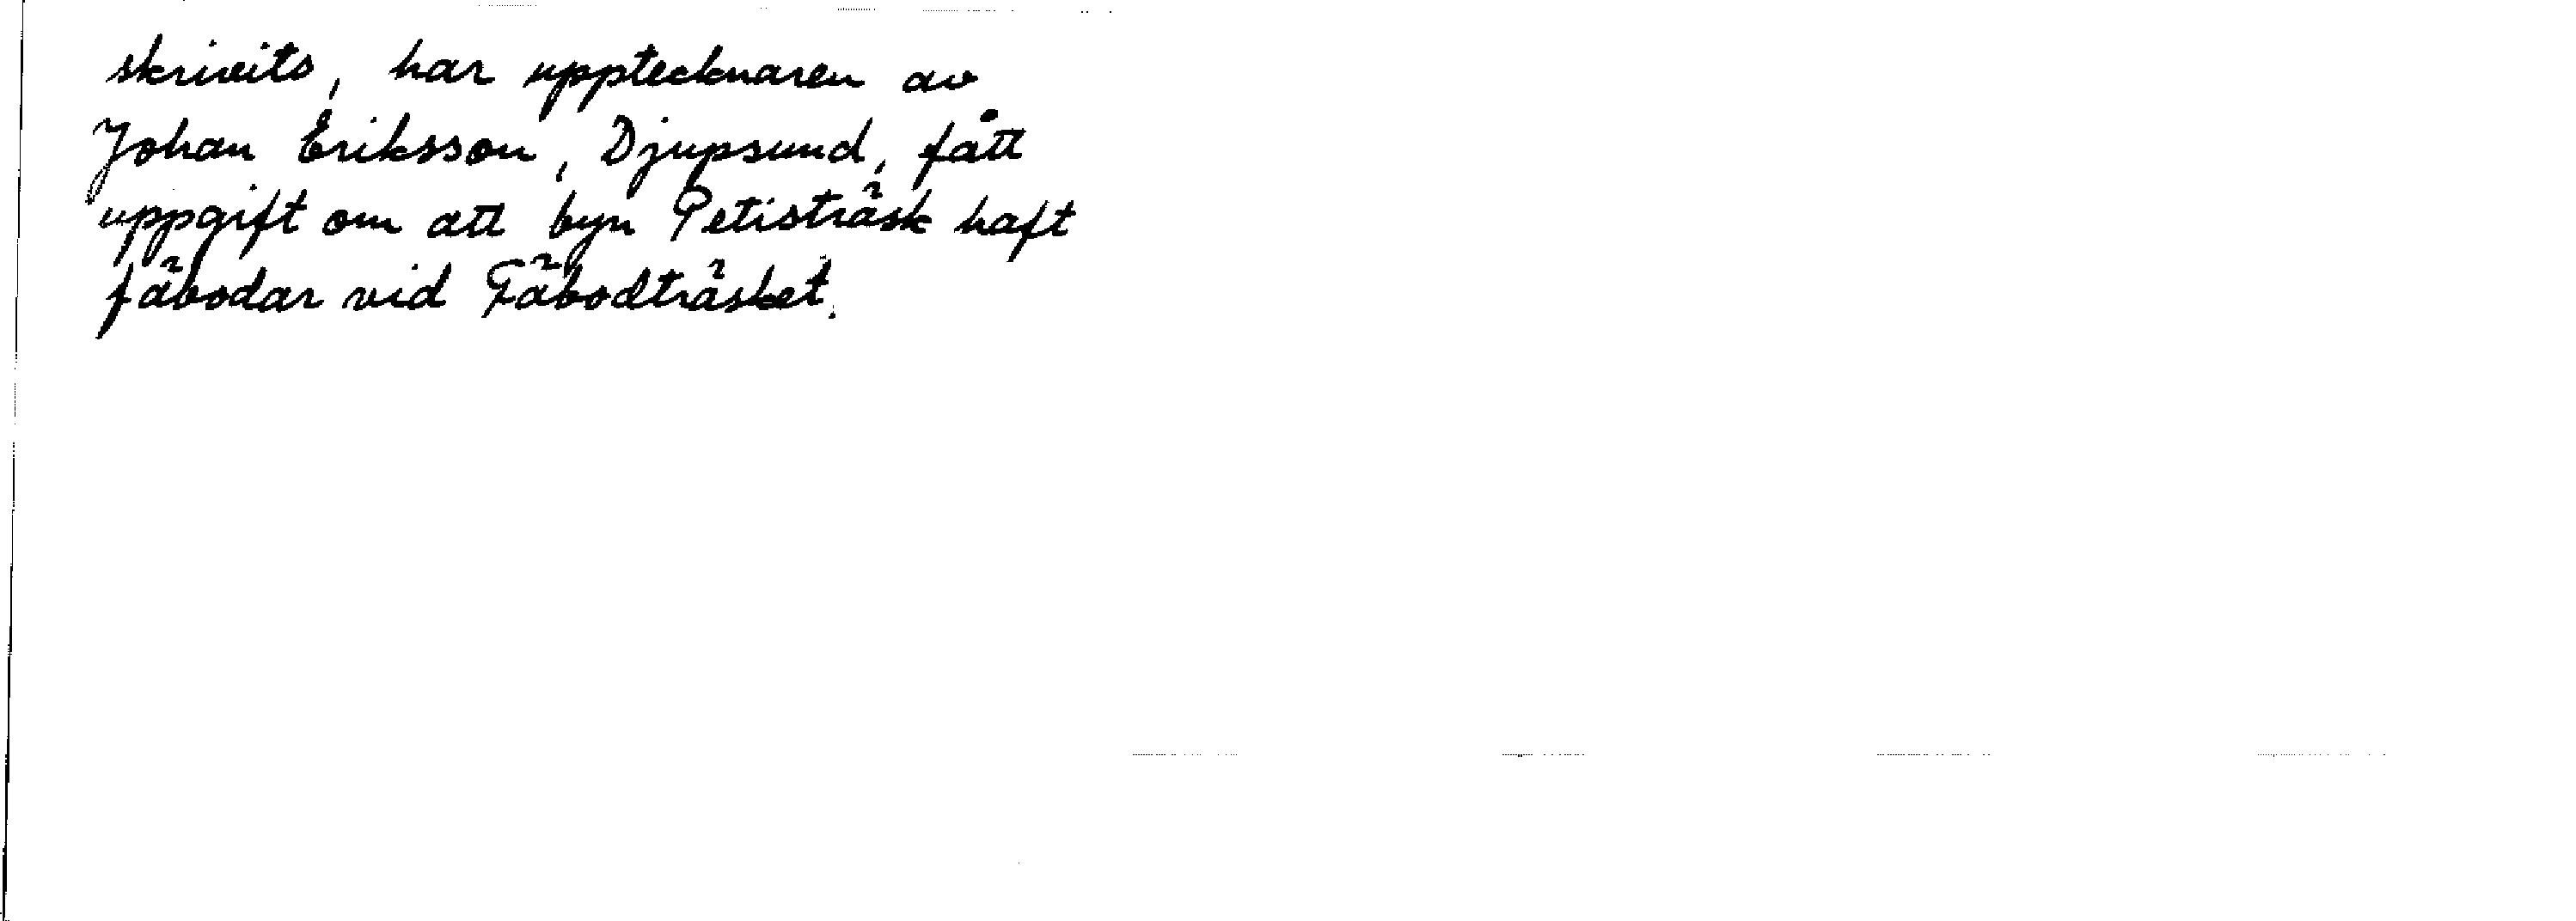 skrivits, har upptecknaren av
Johan Eriksson, Djupsund, fått
uppgift om att byn Petisträsk haft
fäbodar vid Fäbodträsket.